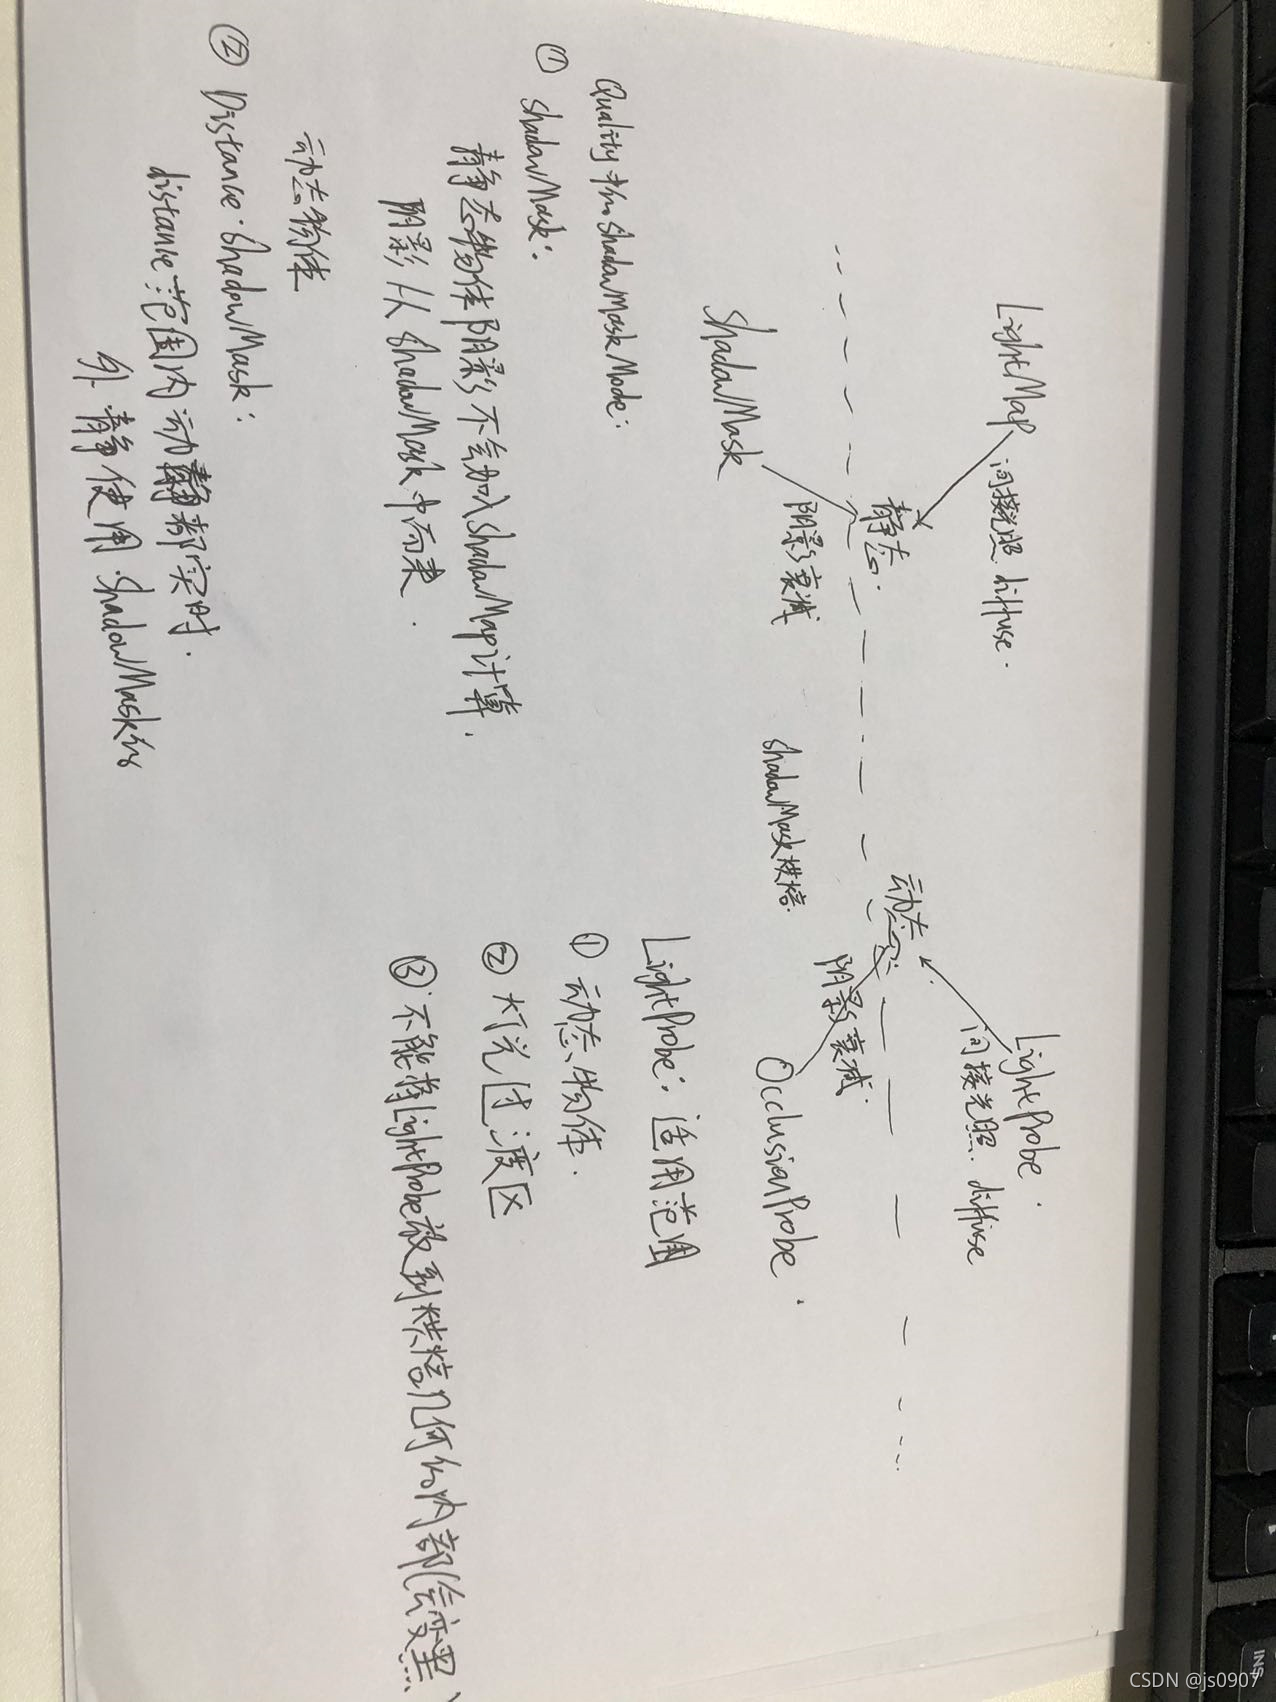 LightMap
间接光照 diffuse.
静态.
ShadowMask
阴影衰减
LightProbe.
间接光照. diffuse
动态.
阴影衰减.
OcclusionProbe.
ShadowMask烘焙.
Quality 中的ShadowMaskMode:
① ShadowMask:
静态物体阴影不会加入ShadowMap计算.
阴影从 ShadowMask 中而来.
动态物体
② Distance·ShadowMask:
distance范围内动静都实时.
外静使用·ShadowMask的
LightProbe: 适用范围
① 动态物体.
② 灯光过渡区
③ 不能将LightProbe放到烘焙几何的内部会变黑
INS
CSDN @js0907